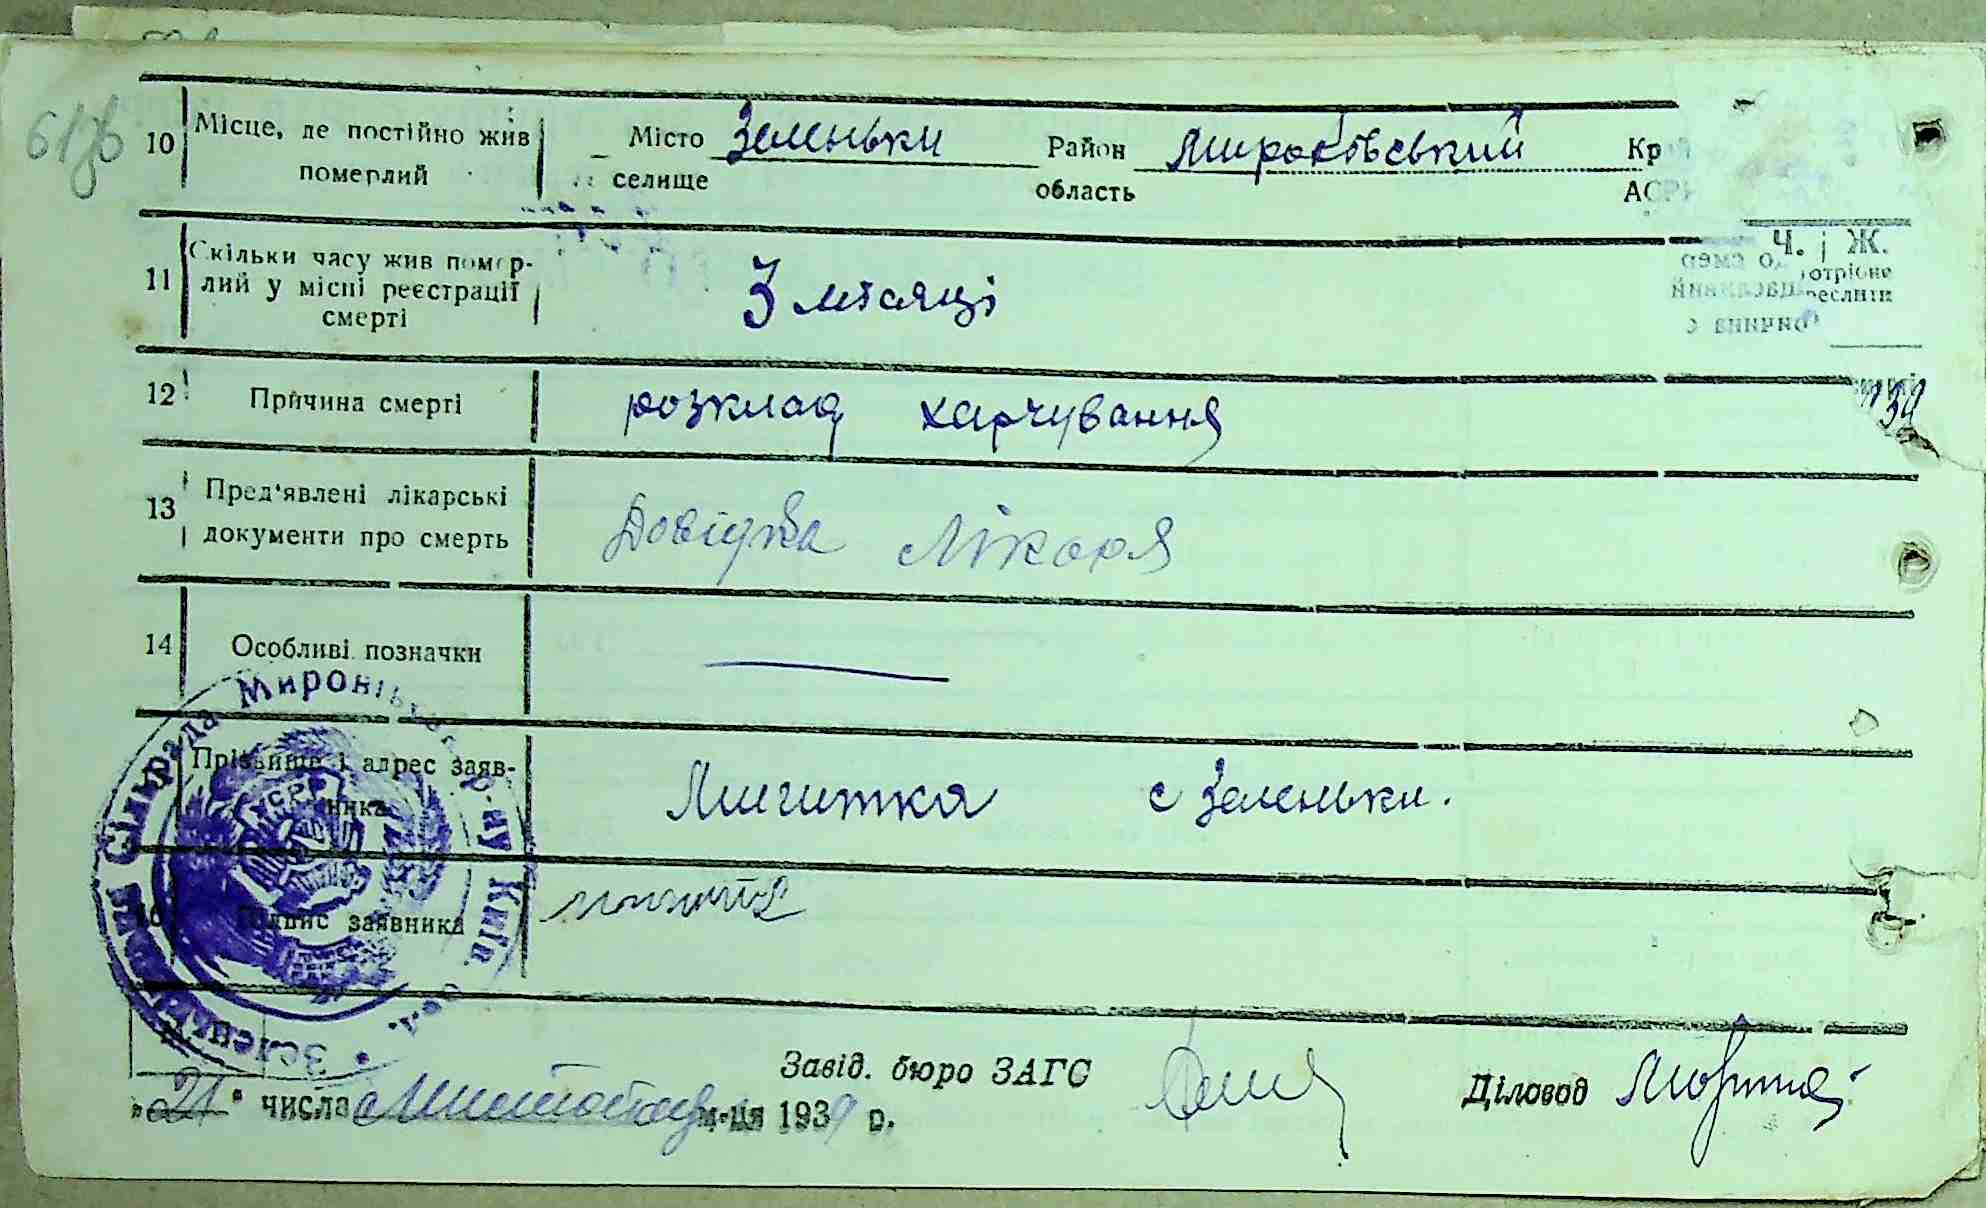 61зв
10 Місце, де постійно жив Місто Зеленьки Район Миронівський Кр
померлий селище область АСРР
Ч. і Ж.
11 Скільки часу жив помер-
лий у місці реєстрації 3 місяці
смерті
12 Причина смерті розклад харчування
13 Пред'явлені лікарські
документи про смерть Довідка Лікаря
14 Особливі позначки
Прізвище і адрес заяв-
ника Мигитка с Зеленьки.
16 Підпис заявника
Сільрада Миронівського р-ну Київ обл.
УСРР
Завід. бюро ЗАГС Діловод
"21" числа Листопада м-ця 1939 р.